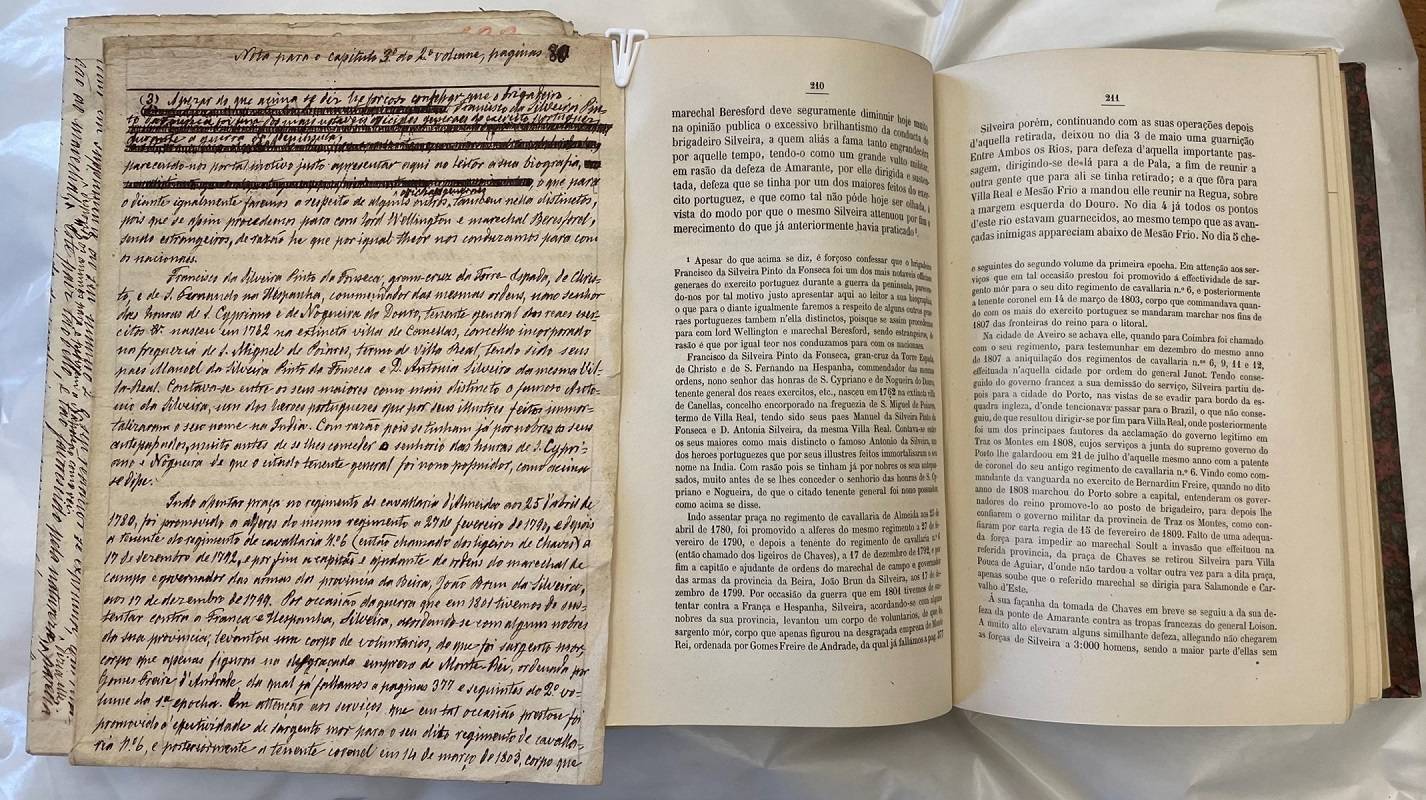 Nota para o capitulo 3º do 2º volume, paginas
(3) Apezar do que acima se diz, he forçoso confessar que o brigadeiro
Francisco da Silveira Pin-
to
parecendo-nos por tal motivo justo apresentar aqui ao leitor a sua biografia,
o que para
officiaes generaes
o diante igualmente faremos a respeito de alguns outros, tambem nella distinctos,
pois que se assim procedemos para com lord Wellington e marechal Beresford,
sendo estrangeiros, de razão he que por igual theor nos conduzamos para com
os nacionaes.
Francisco da Silveira Pinto da Fonseca, gram-cruz da Torre Espada, de Chris-
to, e de S. Fernando na Hespanha, commendador das mesmas ordens, nono senhor
das honras de S. Cypriano e de Nogueira do Douro, tenente general dos reaes exer-
citos &ª. nasceu em 1762 na extincta villa de Canellas, concelho incorporado
na freguezia de S. Miguel de Poiares, termo de Villa Real, tendo sido seus
paes Manoel da Silveira Pinto da Fonseca e D. Antonia Silveira da mesma Vil-
la-Real. Contava-se entre os seus maiores como mais distincto o famoso Anto-
nio da Silveira, um dos heroes portuguezes que por seus illustres feitos immor-
talizaram o seu nome na India. Com razão pois se tinham já por nobres os seus
antepassados, muito antes de se lhes conceder o senhorio das honras de S. Cypri-
ano e Nogueira de que o citado tenente general foi nono possuidor, como acima
se disse.
Indo assentar praça no regimento de cavallaria d'Almeida aos 25 d'abril de
1780, foi promovido a alferes do mesmo regimento a 27 de fevereiro de 1790, e depois
a tenente do regimento de cavallaria Nº 6 (então chamado dos ligeiros de Chaves) a
17 de dezembro de 1792, e por fim a capitão e ajudante de ordens do marechal de
campo e governador das armas da provincia da Beira, João Brun da Silveira,
aos 17 de dezembro de 1799. Por occasião da guerra que em 1801 tivemos de sus-
tentar contra a França e Hespanha, Silveira, acordando-se com alguns nobres
da sua provincia, levantou um corpo de voluntarios, de que foi sargento mor,
corpo que apenas figurou na desgraçada empreza de Monte-Rei, ordenada por
Gomes Freire d'Andrade, da qual já fallamos a paginas 377 e seguintes do 2º vo-
lume da 1ª epocha. Em attenção aos serviços que em tal occasião prestou foi
promovido á efectividade de sargento mór para o seu dito regimento de cavalla-
ria Nº 6, e posteriormente a tenente coronel em 14 de março de 1803, corpo que
210
marechal Beresford deve seguramente diminuir hoje muito
na opinião publica o excessivo brilhantismo da conducta do
brigadeiro Silveira, a quem aliás a fama tanto engrandeceu
por aquelle tempo, tendo-o como um grande vulto militar,
em rasão da defeza de Amarante, por elle dirigida e susten-
tada, defeza que se tinha por um dos maiores feitos do exer-
cito portuguez, e que como tal não póde hoje ser olhada, á
vista do modo por que o mesmo Silveira attenuou por fim o
merecimento do que já anteriormente havia praticado ¹.
¹ Apesar do que acima se diz, é forçoso confessar que o brigadeiro
Francisco da Silveira Pinto da Fonseca foi um dos mais notaveis officiaes
generaes do exercito portuguez durante a guerra da peninsula, parecen-
do-nos por tal motivo justo apresentar aqui ao leitor a sua biographia,
o que para o diante igualmente faremos a respeito de alguns outros gene-
raes portuguezes tambem n'ella distinctos, poisque se assim procedemos
para com lord Wellington e marechal Beresford, sendo estrangeiros, de
rasão é que por igual teor nos conduzamos para com os nacionaes.
Francisco da Silveira Pinto da Fonseca, gran-cruz da Torre Espada,
de Christo e de S. Fernando na Hespanha, commendador das mesmas
ordens, nono senhor das honras de S. Cypriano e de Nogueira do Douro,
tenente general dos reaes exercitos, etc., nasceu em 1762 na extincta villa
de Canellas, concelho encorporado na freguezia de S. Miguel de Poiares,
termo de Villa Real, tendo sido seus paes Manuel da Silveira Pinto da
Fonseca e D. Antonia Silveira, da mesma Villa Real. Contava-se entre
os seus maiores como mais distincto o famoso Antonio da Silveira, um
dos heroes portuguezes que por seus illustres feitos immortalisaram o seu
nome na India. Com rasão pois se tinham já por nobres os seus antepas-
sados, muito antes de se lhes conceder o senhorio das honras de S. Cy-
priano e Nogueira, de que o citado tenente general foi nono possuidor,
como acima se disse.
Indo assentar praça no regimento de cavallaria de Almeida aos 25 de
abril de 1780, foi promovido a alferes do mesmo regimento a 27 de fe-
vereiro de 1790, e depois a tenente do regimento de cavallaria n.º 6
(então chamado dos ligeiros de Chaves), a 17 de dezembro de 1792, e por
fim a capitão e ajudante de ordens do marechal de campo e governador
das armas da provincia da Beira, João Brun da Silveira, aos 17 de de-
zembro de 1799. Por occasião da guerra que em 1801 tivemos de sus-
tentar contra a França e Hespanha, Silveira, acordando-se com alguns
nobres da sua provincia, levantou um corpo de voluntarios, de que foi
sargento mór, corpo que apenas figurou na desgraçada empreza de Monte
Rei, ordenada por Gomes Freire de Andrade, da qual já fallámos a pag. 377
211
Silveira porém, continuando com as suas operações depois
d'aquella retirada, deixou no dia 3 de maio uma guarnição
Entre Ambos os Rios, para defeza d'aquella importante pas-
sagem, dirigindo-se de lá para a de Pala, a fim de reunir a
outra gente que para ali se tinha retirado; e a que fôra para
Villa Real e Mesão Frio a mandou elle reunir na Regua, sobre
a margem esquerda do Douro. No dia 4 já todos os pontos
d'este rio estavam guarnecidos, ao mesmo tempo que as avan-
çadas inimigas appareciam abaixo de Mesão Frio. No dia 5 che-
e seguintes do segundo volume da primeira epocha. Em attenção aos ser-
viços que em tal occasião prestou foi promovido á effectividade de sar-
gento mór para o seu dito regimento de cavallaria n.º 6, e posteriormente
a tenente coronel em 14 de março de 1803, corpo que commandava quan-
do com os mais do exercito portuguez se mandaram marchar nos fins de
1807 das fronteiras do reino para o litoral.
Na cidade de Aveiro se achava elle, quando para Coimbra foi chamado
com o seu regimento, para testemunhar em dezembro do mesmo anno
de 1807 a aniquilação dos regimentos de cavallaria n.ºˢ 6, 9, 11 e 12,
effeituada n'aquella cidade por ordem do general Junot. Tendo conse-
guido do governo francez a sua demissão do serviço, Silveira partiu de-
pois para a cidade do Porto, nas vistas de se evadir para bordo da es-
quadra ingleza, d'onde tencionava passar para o Brazil, o que não conse-
guiu, de que resultou dirigir-se por fim para Villa Real, onde posteriormente
foi um dos principaes fautores da acclamação do governo legitimo em
Traz os Montes em 1808, cujos serviços a junta do supremo governo do
Porto lhe galardoou em 21 de julho d'aquelle mesmo anno com a patente
de coronel do seu antigo regimento de cavallaria n.º 6. Vindo como com-
mandante da vanguarda no exercito de Bernardim Freire, quando no dito
anno de 1808 marchou do Porto sobre a capital, entenderam os gover-
nadores do reino promove-lo ao posto de brigadeiro, para depois lhe
confiarem o governo militar da provincia de Traz os Montes, como con-
fiaram por carta regia de 15 de fevereiro de 1809. Falto de uma adequa-
da força para impedir ao marechal Soult a invasão que effeituou na
referida provincia, da praça de Chaves se retirou Silveira para Villa
Pouca de Aguiar, d'onde não tardou a voltar outra vez para a dita praça,
apenas soube que o referido marechal se dirigia para Salamonde e Car-
valho d'Este.
Á sua façanha da tomada de Chaves em breve se seguiu a da sua de-
feza da ponte de Amarante contra as tropas francezas do general Loison.
A muito alto elevaram alguns similhante defeza, allegando não chegarem
as forças de Silveira a 3:000 homens, sendo a maior parte d'ellas sem